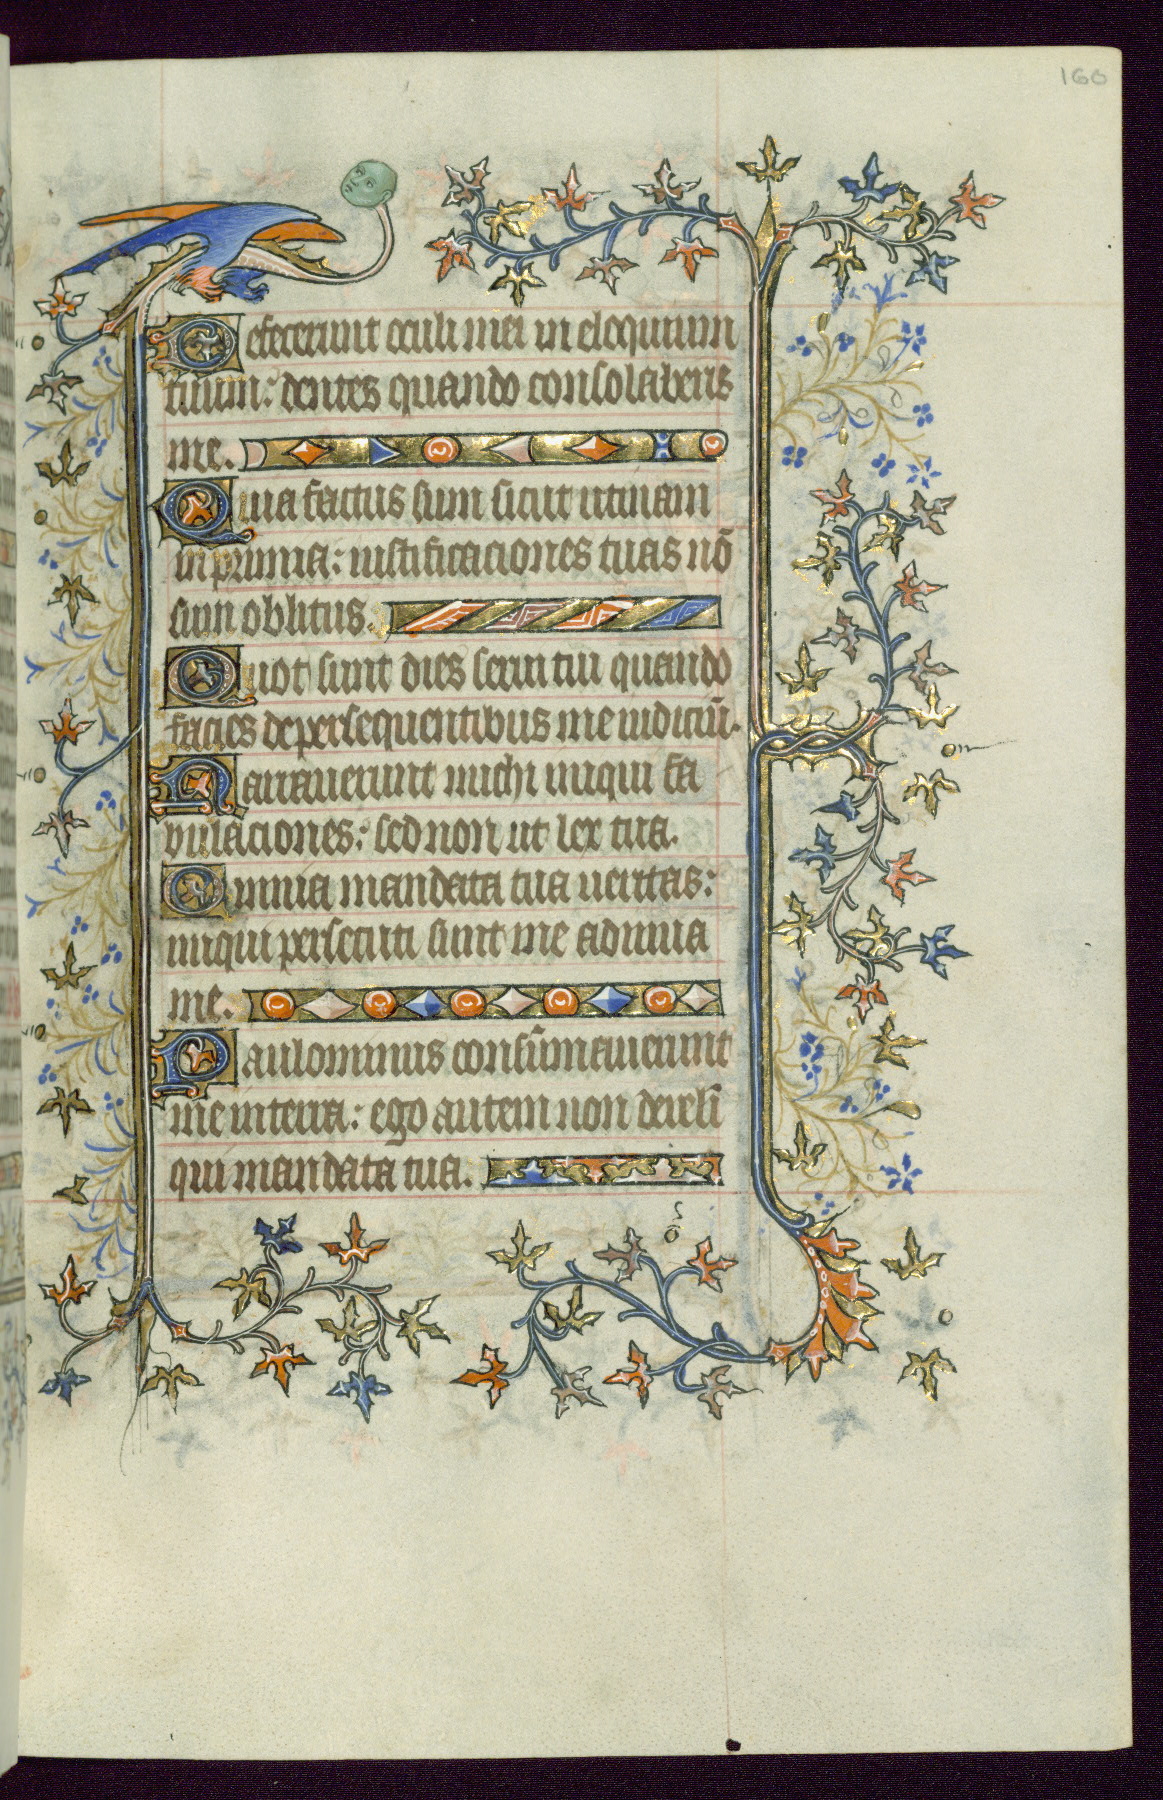 160
Defecerunt oculi mei in eloquium
tuum: dentes quando consolaberis
me.
Quia factus sum sicut utinam
in pruina: iustificaciones tuas nō
sum oblitus.
Quot sunt dies serui tui quando
facies depersequentibus me iudiciū.
Narrauerunt michi iniqui fa
bulaciones: sed non ut lex tua.
Omnia mandata tua ueritas:
iniqui persecuti sunt me adiuua
me.
Paulominus consūmauerunt
me interra: ego autem non dereli
qui mandata tua.